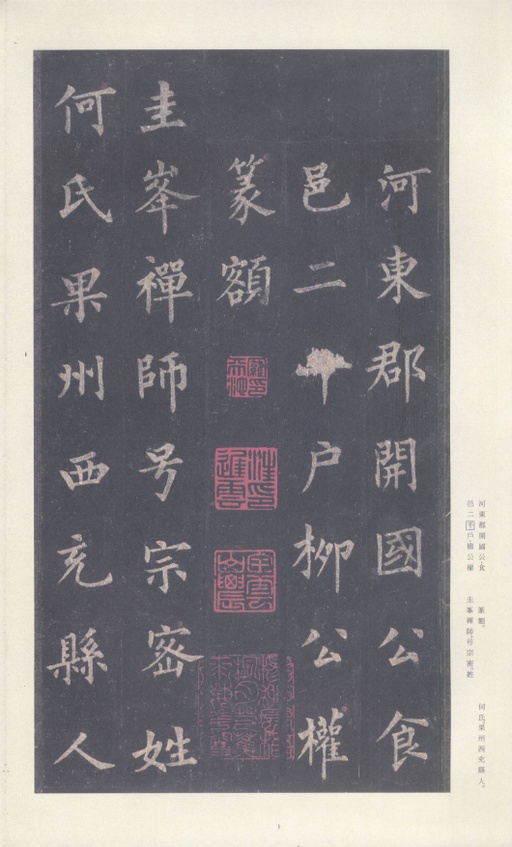 河東郡開國公食
邑二千户柳公權
篆額
圭峯禪師号宗密姓
何氏果州西充縣人
河東郡開國公食
邑二千戶柳公權
篆額。
圭峯禪師。号宗密。姓
何氏。果州西充縣人。